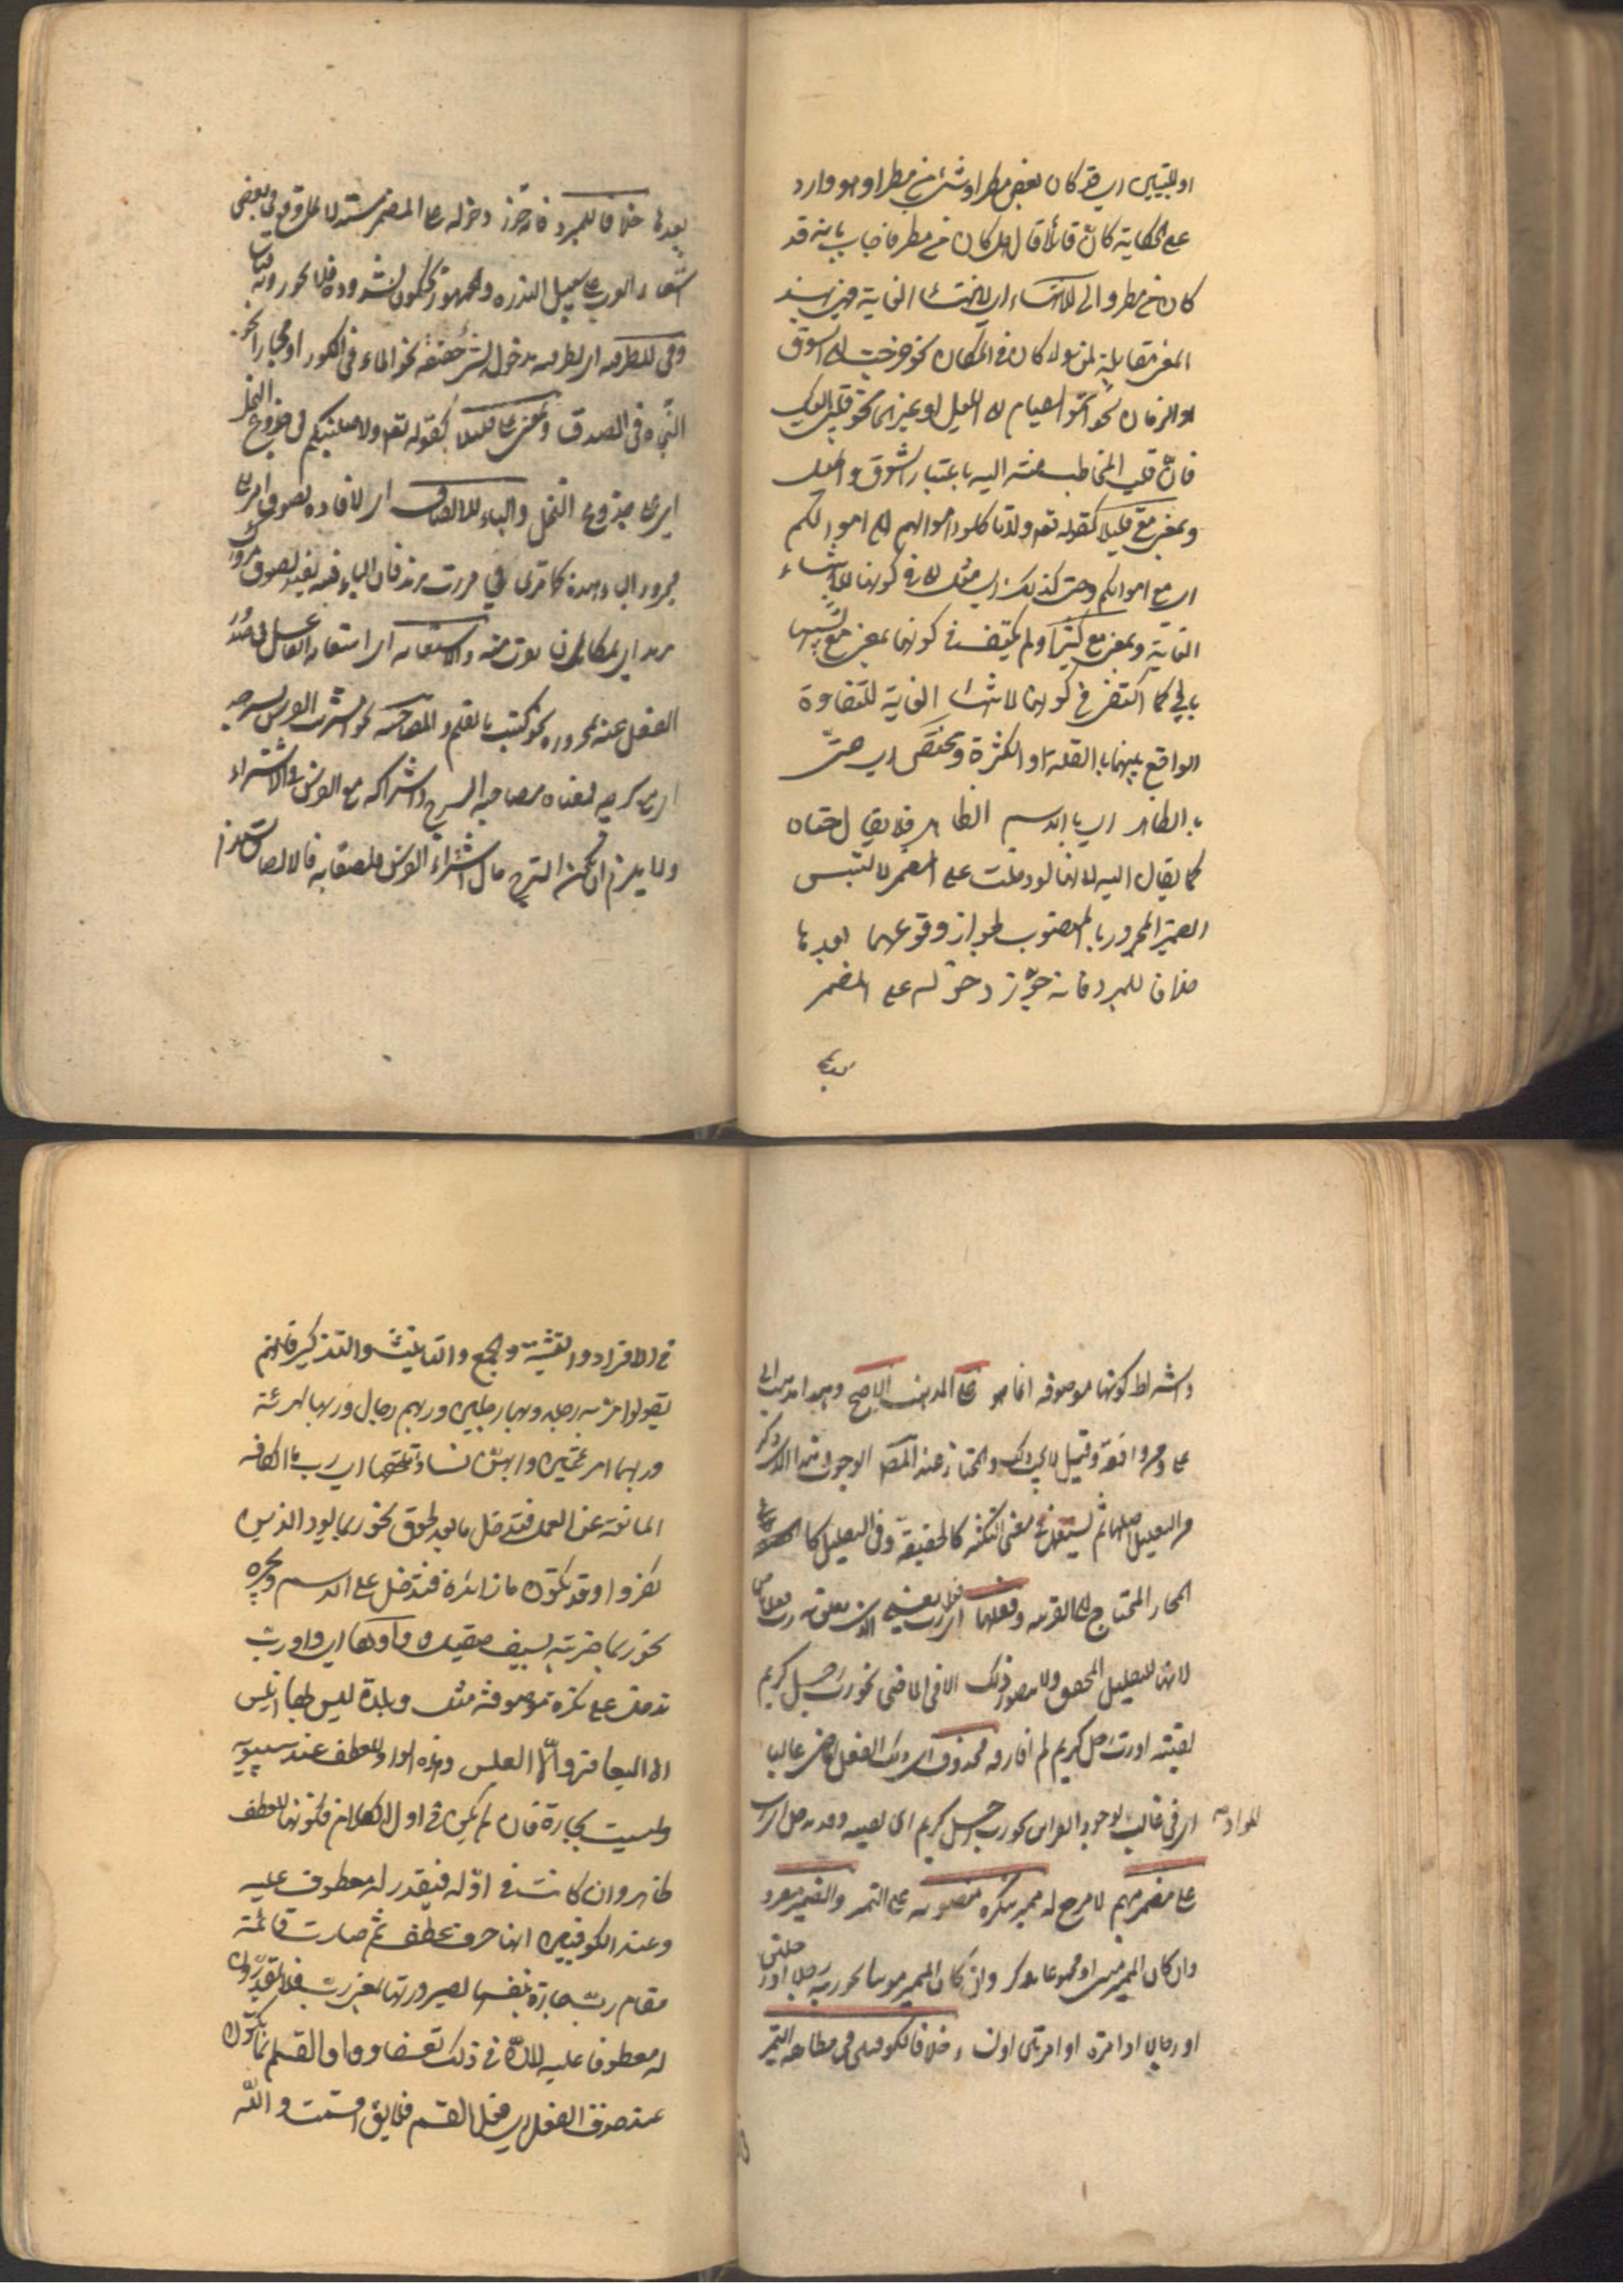 او للتبيين اي قد كان بعض مطر او شئ من مطر او هو وارد
على الحكاية كأنّ قائلا قال هل كان من مطر فاجاب بانه قد
كان من مطر والى للانتهاء اي لانتهاء الغاية فهي بهذا
المعنى مقابلة لمن سواء كان في المكان نحو خرجت الى السوق
او الزمان نحو اتموا الصيام الى الليل او غيرهما نحو قلبي اليك
فانّ قلب المخاطب منته اليه باعتبار الشوق والميل
وبمعنى مع قليلا كقوله تعه ولا تأكلوا اموالهم الى اموالكم
اي مع اموالكم وحتى كذلك اي مثل الى في كونها لانتهاء
الغاية وبمعنى مع كثيرا ولم يكتف في كونها بمعنى مع بتشبيهها
بالى كما اكتفى في كونها لانتهاء الغاية للتفاوة
الواقع بينهما بالقلة والكثرة وتختص اي حتى
بالظاهر اي بالاسم الظاهر فلا يقال حتاه
كما يقال اليه لانها لو دخلت على المضمر لالتبس
الضمير المجرور بالمنصوب لجواز وقوعهما بعدها
خلافا للمبرد فانه جوّز دخوله على المضمر
بعدها
بعدها خلافا للمبرد فانه جوّز دخوله على المضمر مستدلا بما وقع في بعض
اشعار العرب على سبيل الندرة والجمهور يحكمون بشذوذه فلا يجوزونه قياسا
وفي للظرفية اي لظرفية مدخولها لشئ حقيقة نحو الماء في الكوز او مجازا نحو
النجاة في الصدق وبمعنى على قليلا كقوله تعه ولاصلبنكم في جذوع النخل
اي على جذوع النخل والباء للالصاق اي لافادة لصوق امر الى
مجرور الباء وهذه كما ترى في مررت بزيد فان الباء فيه تفيد لصوق مرورك
بزيد اي بمكان يقرب منه والاستعانة اي استعانة الفاعل في صدور
الفعل عنه بمجروره نحو كتبت بالقلم والمصاحبة نحو اشتريت الفرس بسرجه
اي مع سرجه فمعناه مصاحبة السرج واشتراكه مع الفرس في الاشتراء
ولا يلزم ان يكون السرج حال اشتراء الفرس ملصقا به فالالصاق يستلزم
واشتراط كونها موصوفة انما هو على المذهب الاصح وهو مذهب ابي
على ومن وافقه وقيل لا يجب ذلك والمختار عند المصه الوجوب هذا الذي ذكر
من التقليل اصلها ثم تستعمل في معنى التكثير كالحقيقة وفي التقليل
كالمجاز المحتاج الى القرينة وفعلها اي رب يعني الذي تعلق به رب فعل ماض
لانها للتقليل المحقق ولا يتصور ذلك الا في الماضي نحو رب رجل كريم
لقيته او رب رجل كريم لم افارقه محذوف اي ذلك الفعل الماضي غالبا
اي في غالب لوجود القرائن نحو رب رجل كريم اي لقيته وقد تدخل اي رب
على مضمر مبهم لا مرجع له مميز بنكرة منصوبة على التميز والضمير مفرد
وان كان المميز مثنى او مجموعا مذكر وان كان المميز مونثا نحو ربه رجلا او رجلين
او رجالا او امرأة او امرأتين او نساء خلافا للكوفيين في مطابقة التميز
في الافراد والتثنية والجمع والتانيث والتذكير فانهم
يقولون ربه رجلا وربهما رجلين وربهم رجالا وربها امرئة
وربهما امرئتين وربهنّ نساء وتلحقها اي رب ما الكافة
المانعة عن العمل فتدخل ما بعد لحوق نحو ربما يود الذين
كفروا وقد تكون ما زائدة فتدخل على الاسم وتجره
نحو ربما ضربة بسيف صقيل وواوها اي واو رب
تدخل على نكرة موصوفة مثل وبلدة ليس بها انيس
الا اليعافير والّا العيس وهذه الواو للعطف عند سيبويه
وليست بجارة فان لم يكن في اول الكلام فكونها للعطف
ظاهر وان كانت في اوّله فيقدر له معطوف عليه
وعند الكوفيين انها حرف عطف ثم صارت قائمة
مقام ربّ جارة بنفسها لصيرورتها بمعنى ربّ فلا يقدّرون
له معطوفا عليه لانّ في ذلك تعسفا وواو القسم انما تكون
عند حذف الفعل اي فعل القسم فلا يقال اقسمت والله